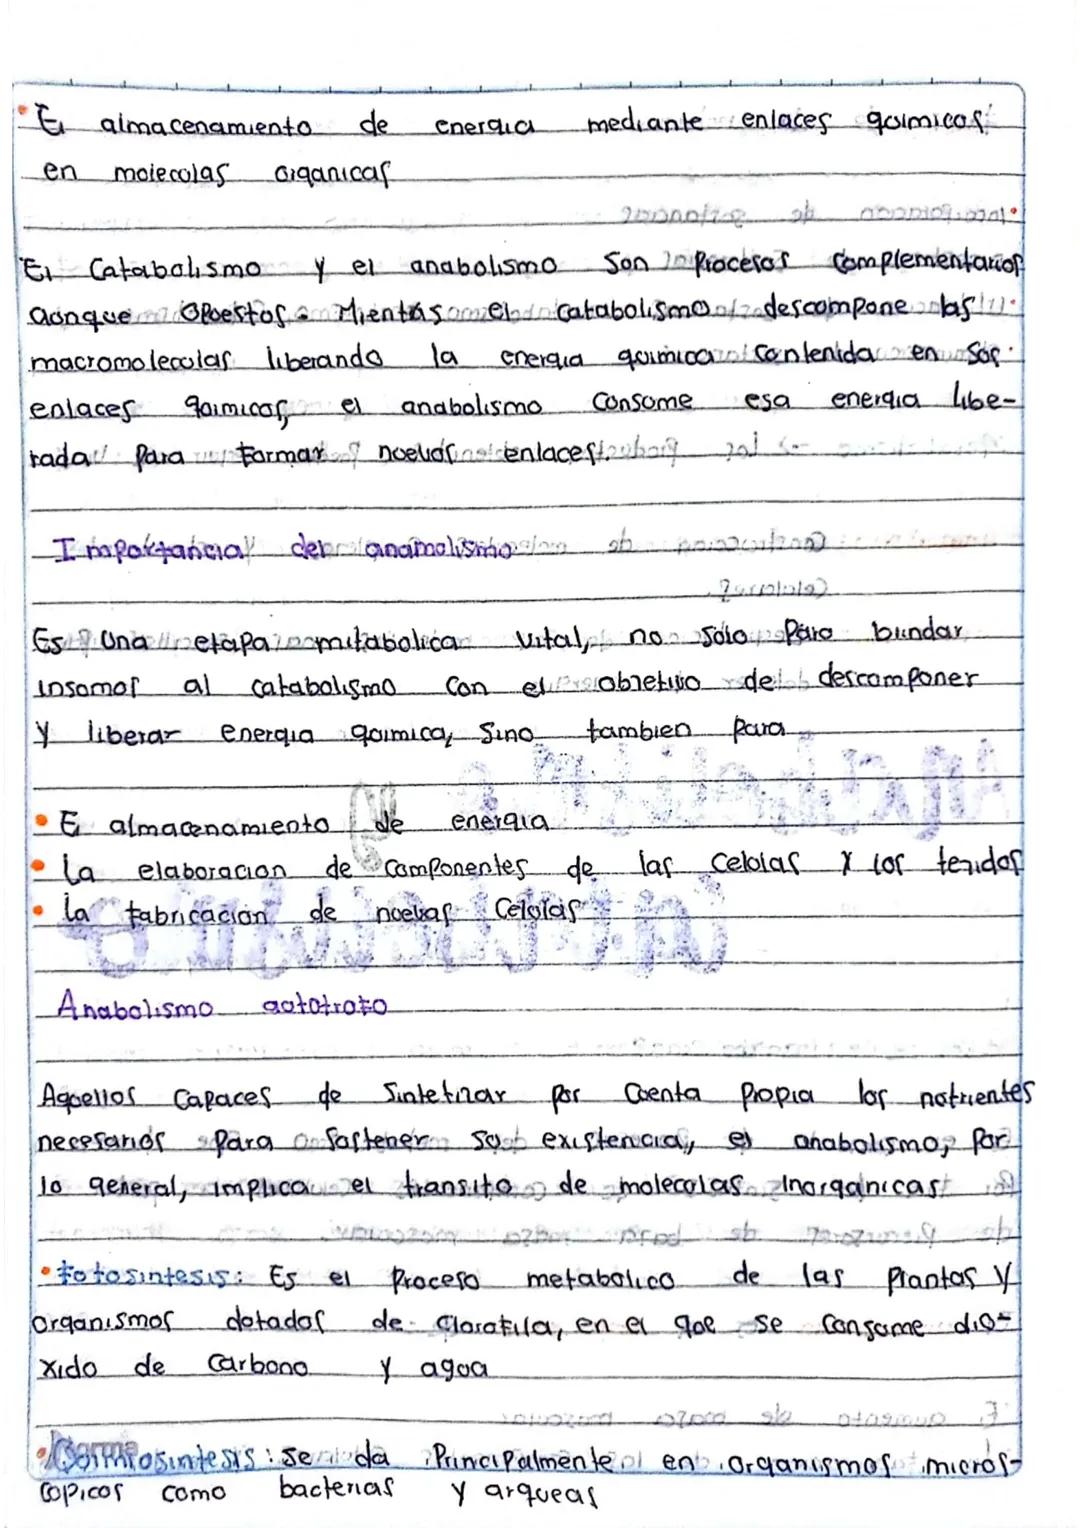 • El almacenamiento de energia mediante enlaces quimicos
en moleculas organicas
El Catabolismo y el anabolismo Son Procesos Complementarios
aunque opuestos. Mientras el catabolismo descompone las
macromoleculas liberando la energia quimica contenida en sus
enlaces quimicos, el anabolismo Consume esa energia libe-
rada Para Formar nuevos enlaces.
Importancia del anamolismo
Es Una etapa mitabolica vital, no solo Para bundar
insumos al catabolismo Con el objetivo de descomponer
y liberar energia quimica, Sino tambien Para
• El almacenamiento de energia
• La elaboracion de componentes de las Celulas y los tejidos
• La fabricacion de nuevas Celulas
Anabolismo autotrofo
Aquellos Capaces de Sintetizar por Cuenta Propia los nutrientes
necesarios Para Sostener su existencia, el anabolismo, Por
lo general, implica el transito de moleculas Inorganicas
• Fotosintesis: Es el Proceso metabolico de las Plantas y
organismos dotados de Clorofila, en el que se Consume dio-
xido de Carbono y agua
osintesis: Se da Principalmente en organismos micros-
copicos como bacterias y arqueas